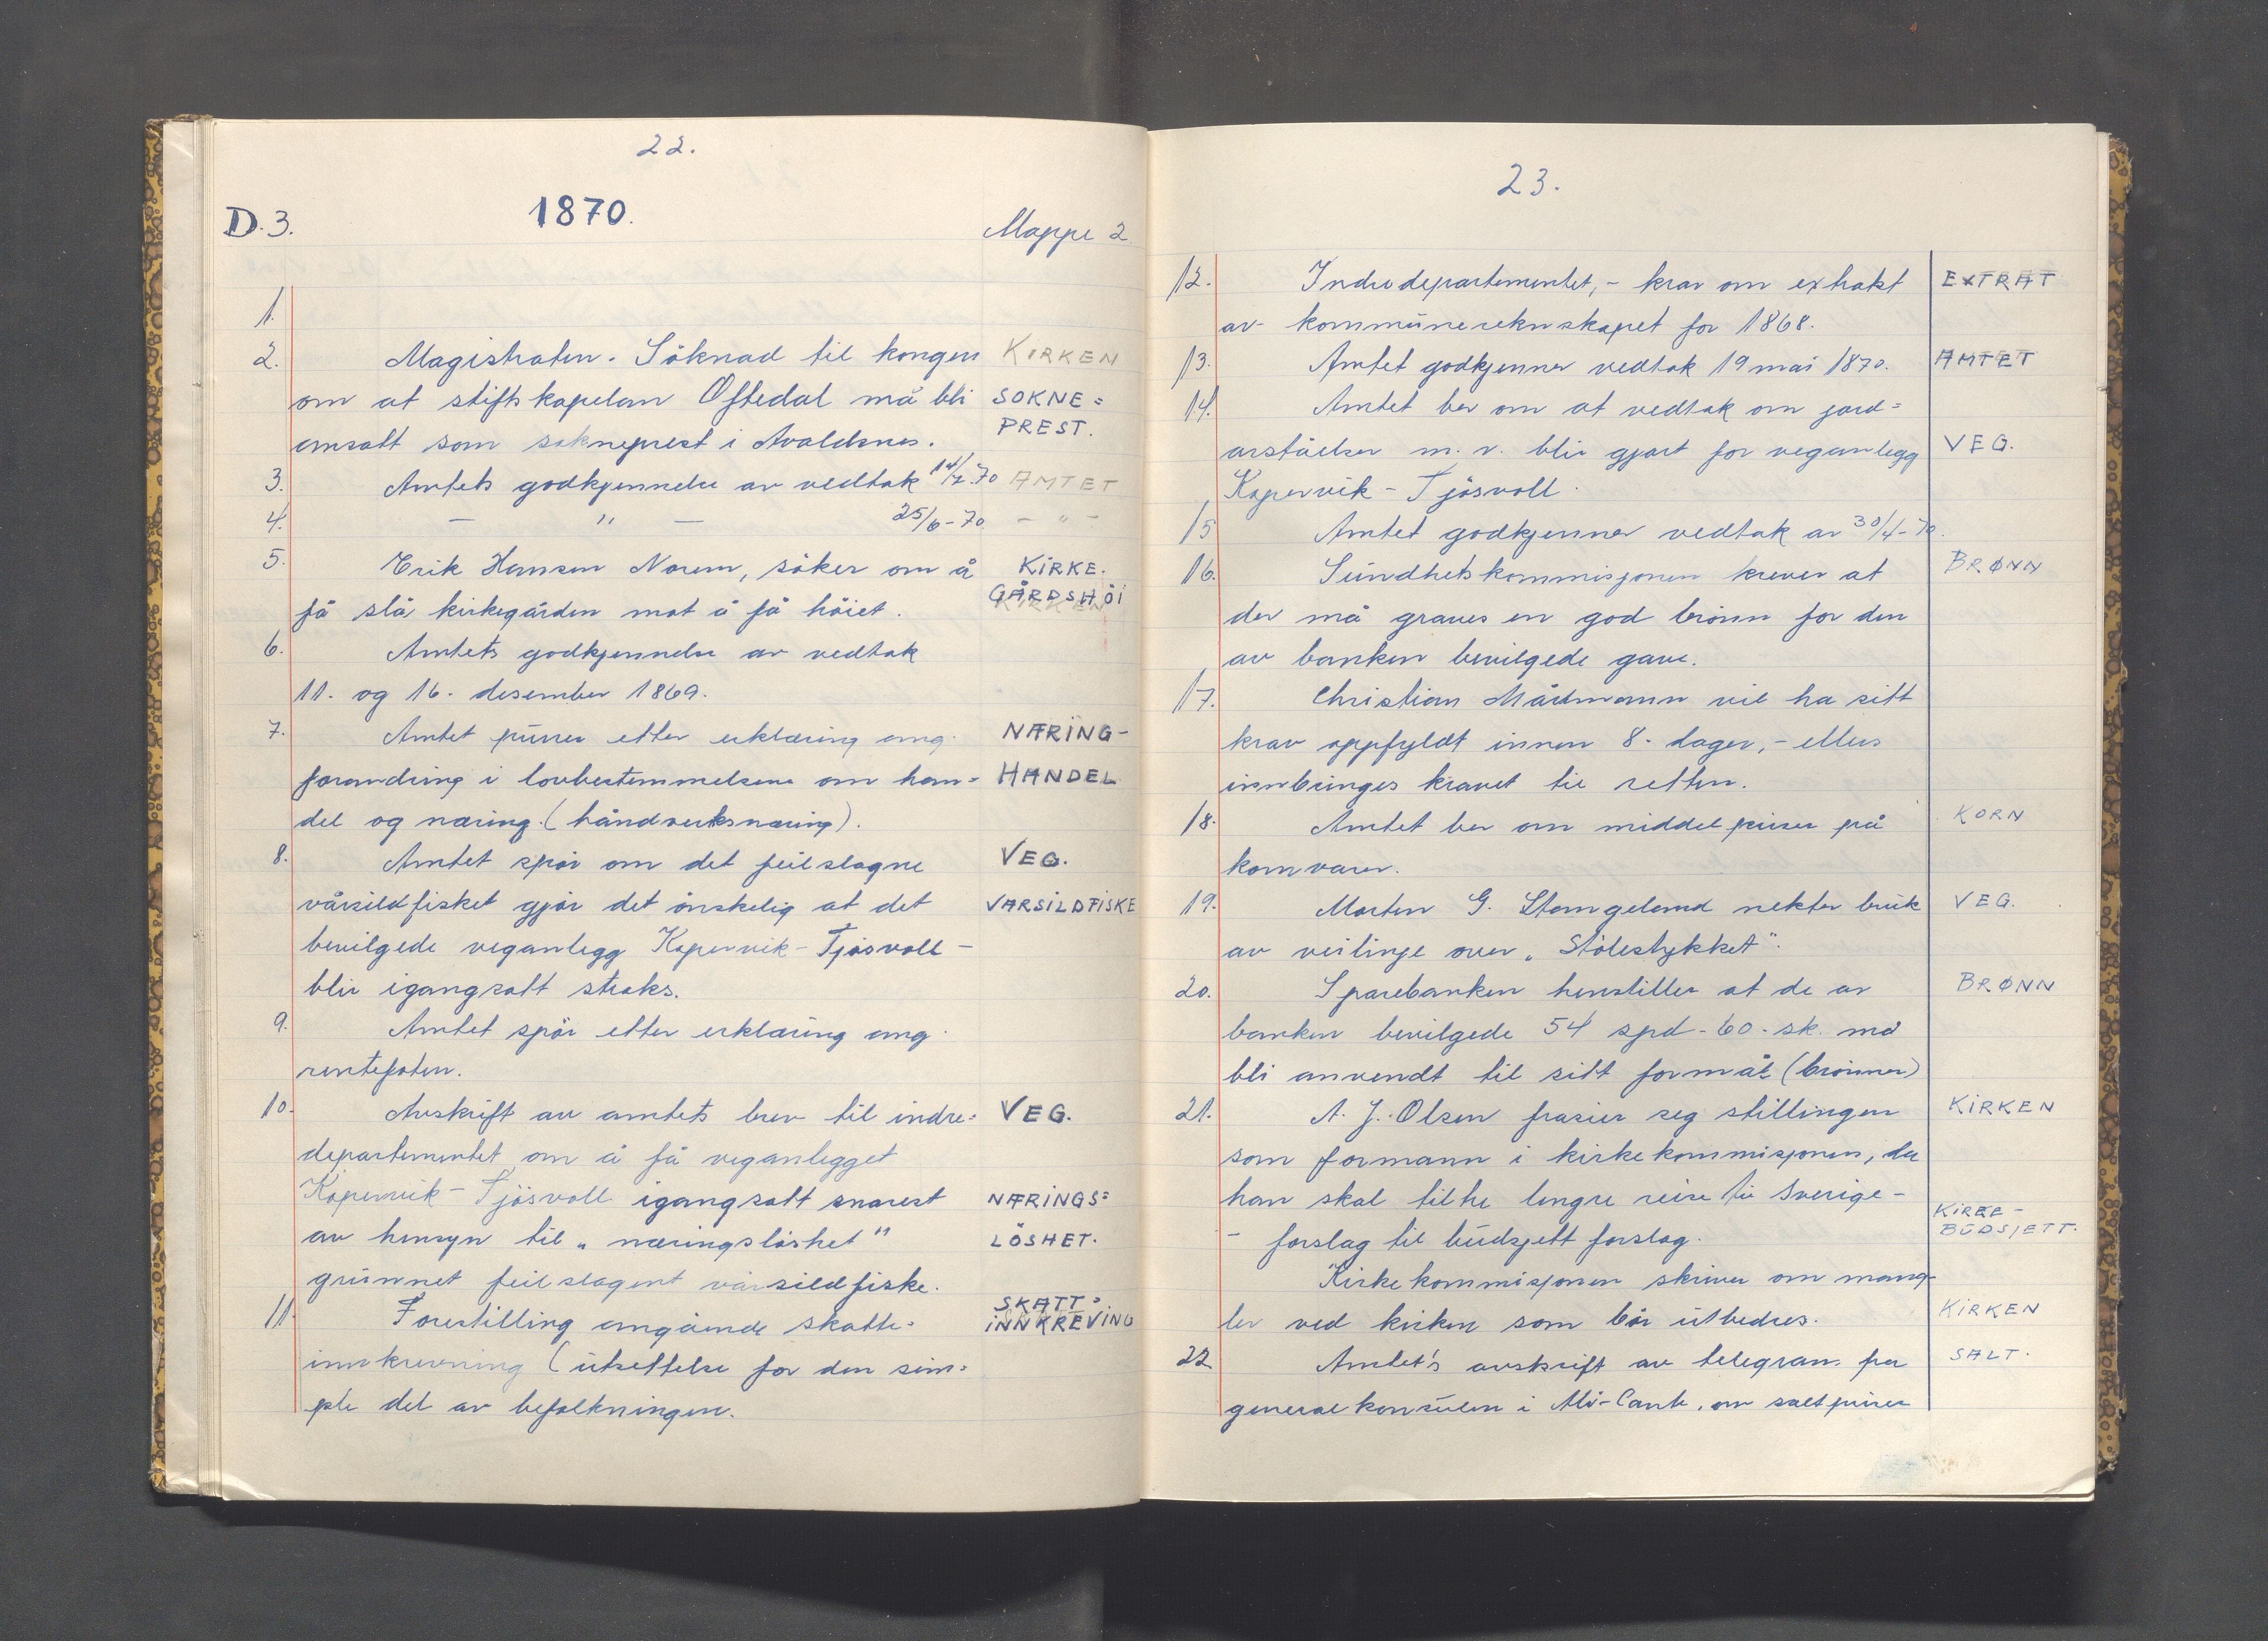 22.
D. 3. 1870. Mappe 2
1.
2. Magistraten. Söknad til kongen KIRKEN
om at stiftskapelan Oftedal må bli SOKNE=
ansatt som sokneprest i Avaldsnes. PREST.
3. Amtets godkjennelse av vedtak 14/2-70 AMTET
4. — " — 25/6-70 - " -
5. Erik Hansen Norem, söker om å KIRKE.
få slå kirkegården mot å få höiet. GÅRDSHÖI
6. Amtets godkjennelse av vedtak
11. og 16. desember 1869.
7. Amtet purrer etter erklæring ang. NÆRING-
forandring i lovbestemmelsene om han= HANDEL
del og næring. (håndverksnæring).
8. Amtet spör om det feilslagne VEG.
vårsildfisket gjör det önskelig at det VARSILDFISKE
bevilgede veganlegg Kopervik - Tjösvoll -
blir igangsatt straks.
9. Amtet spör etter erklæring ang.
rentefoten.
10. Avskrift av amtets brev til indre= VEG.
departementet om å få veganlegget
Kopervik - Tjösvoll igangsatt snarest NÆRINGS=
av hensyn til „ næringslöshet " LÖSHET.
grunnet feilslagent vårsildfiske.
11. Forestilling angående skatte= SKATT=
INNKREVING
innkrevning (utsettelse for den sim=
ple del av befolkningen.
23.
12. Indredepartementet, - krav om extrakt EXTRAT
av kommuneregnskapet for 1868.
13. Amtet godkjenner vedtak 19 mai 1870. AMTET
14. Amtet ber om at vedtak om jord=
avståelser m. v. blir gjort for veganlegg VEG.
Kopervik - Tjösvoll.
15 Amtet godkjenner vedtak av 30/4-70.
16. Sundhetskommisjonen krever at BRØNN
der må graves en god brönn for den
av banken bevilgede gave.
17. Christian vil ha sitt
krav oppfyldt innen 8. dager, - ellers
innbringes kravet til retten.
18. Amtet ber om middelpriser på KORN
kornvarer.
19. Morten G. Stangeland nekter bruk VEG.
av veilinje over „ Stölestykket ".
20. Sparebanken henstiller at de av BRØNN
banken bevilgede 54 spd - 60 - sk. må
bli anvendt til sitt formål (brönner)
21. A. J. Olsen frasier seg stillingen KIRKEN
som formann i kirkekommisjonen, da
han skal lengre reise til Sverige -
KIRKE-
- forslag til budsjett forslag. BUDSJETT.
Kirkekommisjonen skriver om mang-
ler ved kirken som bör utbedres. KIRKEN
22 Amtet's avskrift av telegram fra SALT.
generalkonsulen i Ali-Cante, om saltpriser